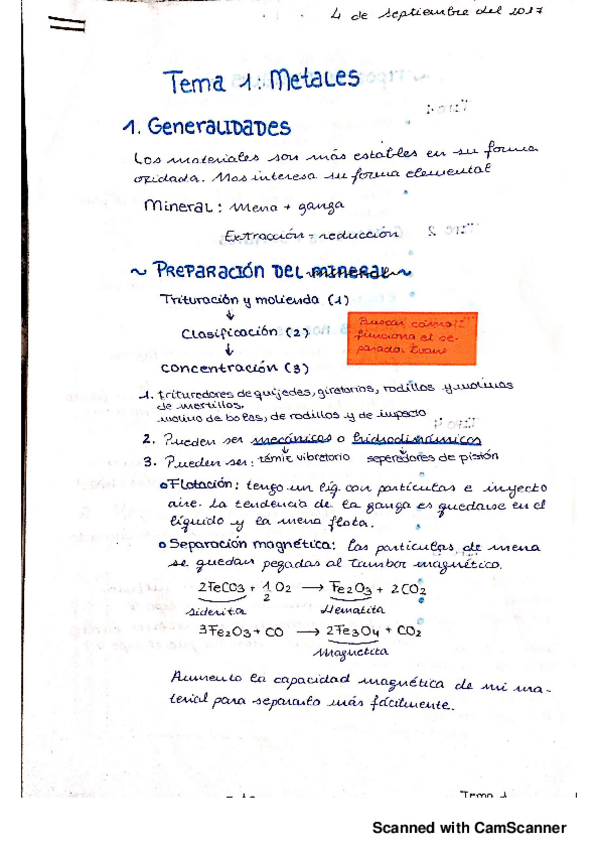 4 de septiembre del 2017
Tema 1: Metales
1. Generalidades
Los materiales son más estables en su forma
oxidada. Nos interesa su forma elemental
Mineral: mena + ganga
Extracción = reducción
~ Preparación del mineral ~
Trituración y molienda (1)
↓
Clasificación (2)
↓
Concentración (3)
Buscar cómo
funciona el se-
parador Evans
1. trituredores de quijedes, giratorios, rodillos y molinos
de mertillos.
molino de bolas, de rodillos y de impacto
2. Pueden ser mecánicos o hidrodinámicos
támiz vibratorio seperedores de pistón
3. Pueden ser:
Flotación: tengo un líq. con partículas e inyecto
aire. La tendencia de la ganga es quedarse en el
líquido y la mena flota.
Separación magnética: las partículas de mena
se quedan pegadas al tambor magnético.
2FeCO3 + 1/2 O2 → Fe2O3 + 2CO2
Siderita Hematita
3Fe2O3 + CO → 2Fe3O4 + CO2
Magnetita
Aumento la capacidad magnética de mi ma-
terial para separarlo más fácilmente.
Tema 1
Scanned with CamScanner